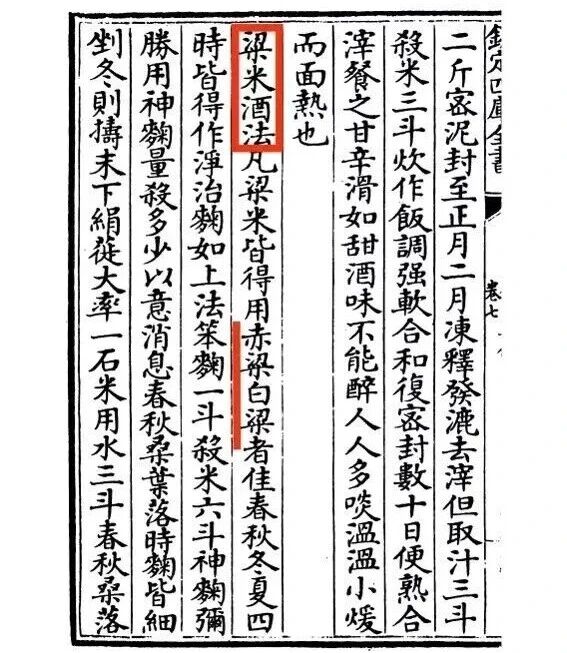 欽定四庫全書
卷七
二斤宻泥封至正月二月凍釋發漉去滓但取汁三斗
殺米三斗炊作飯調强軟合和復宻封數十日便熟合
滓餐之甘辛滑如甜酒味不能醉人人多啖溫溫小煖
而面熱也
粱米酒法凡粱米皆得用赤粱白粱者佳春秋冬夏四
時皆得作淨治麴如上法笨麴一斗殺米六斗神麴彌
勝用神麴量殺多少以意消息春秋桑葉落時麴皆細
剉冬則擣末下絹篵大率一石米用水三斗春秋桑落